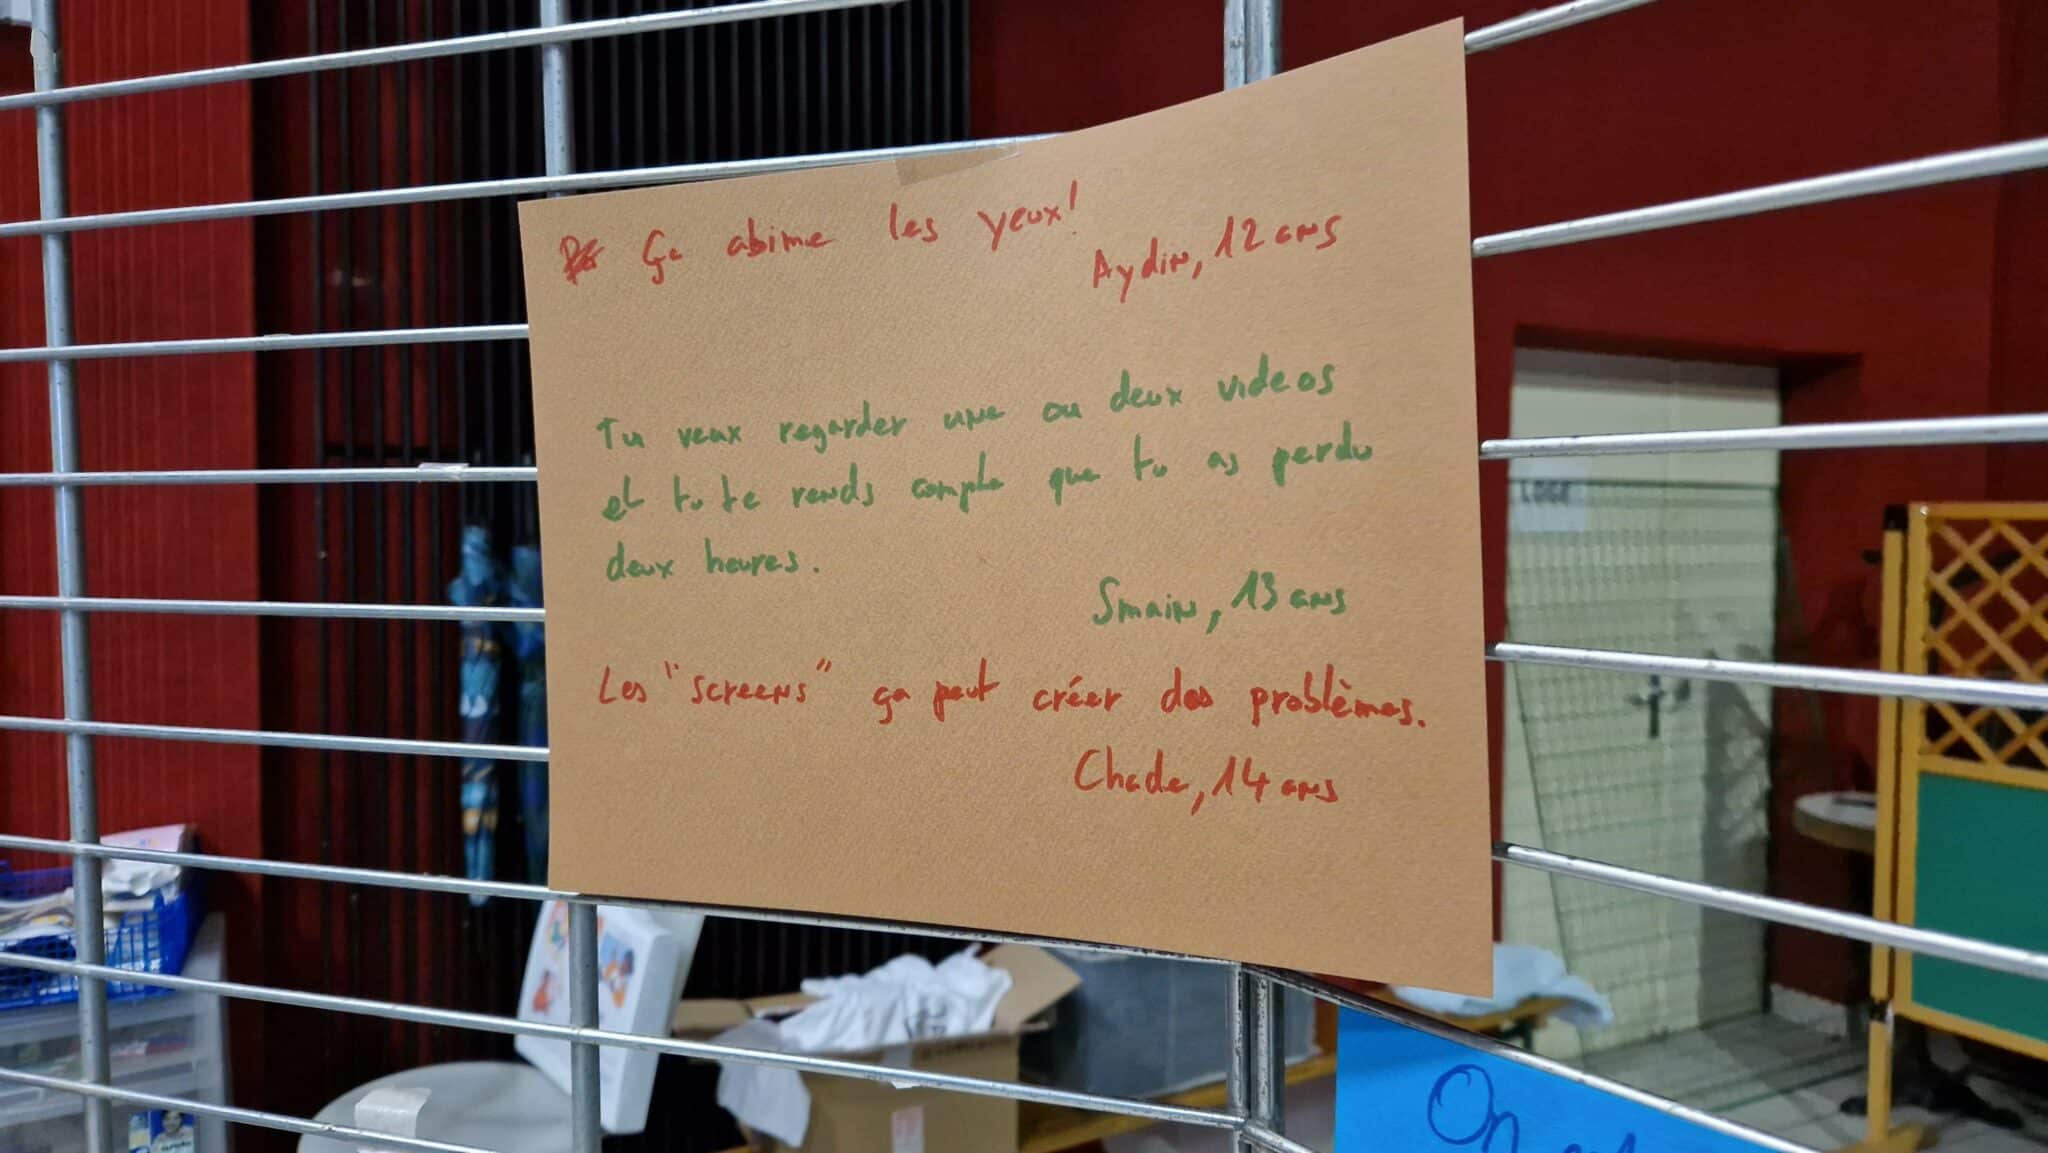 Ça abime les yeux!
Aydin, 12 ans
Tu veux regarder une ou deux videos
et tu te rends compte que tu as perdu
deux heures.
Smain, 13 ans
Les "screens" ça peut créer des problèmes.
Chade, 14 ans
LOGE
On